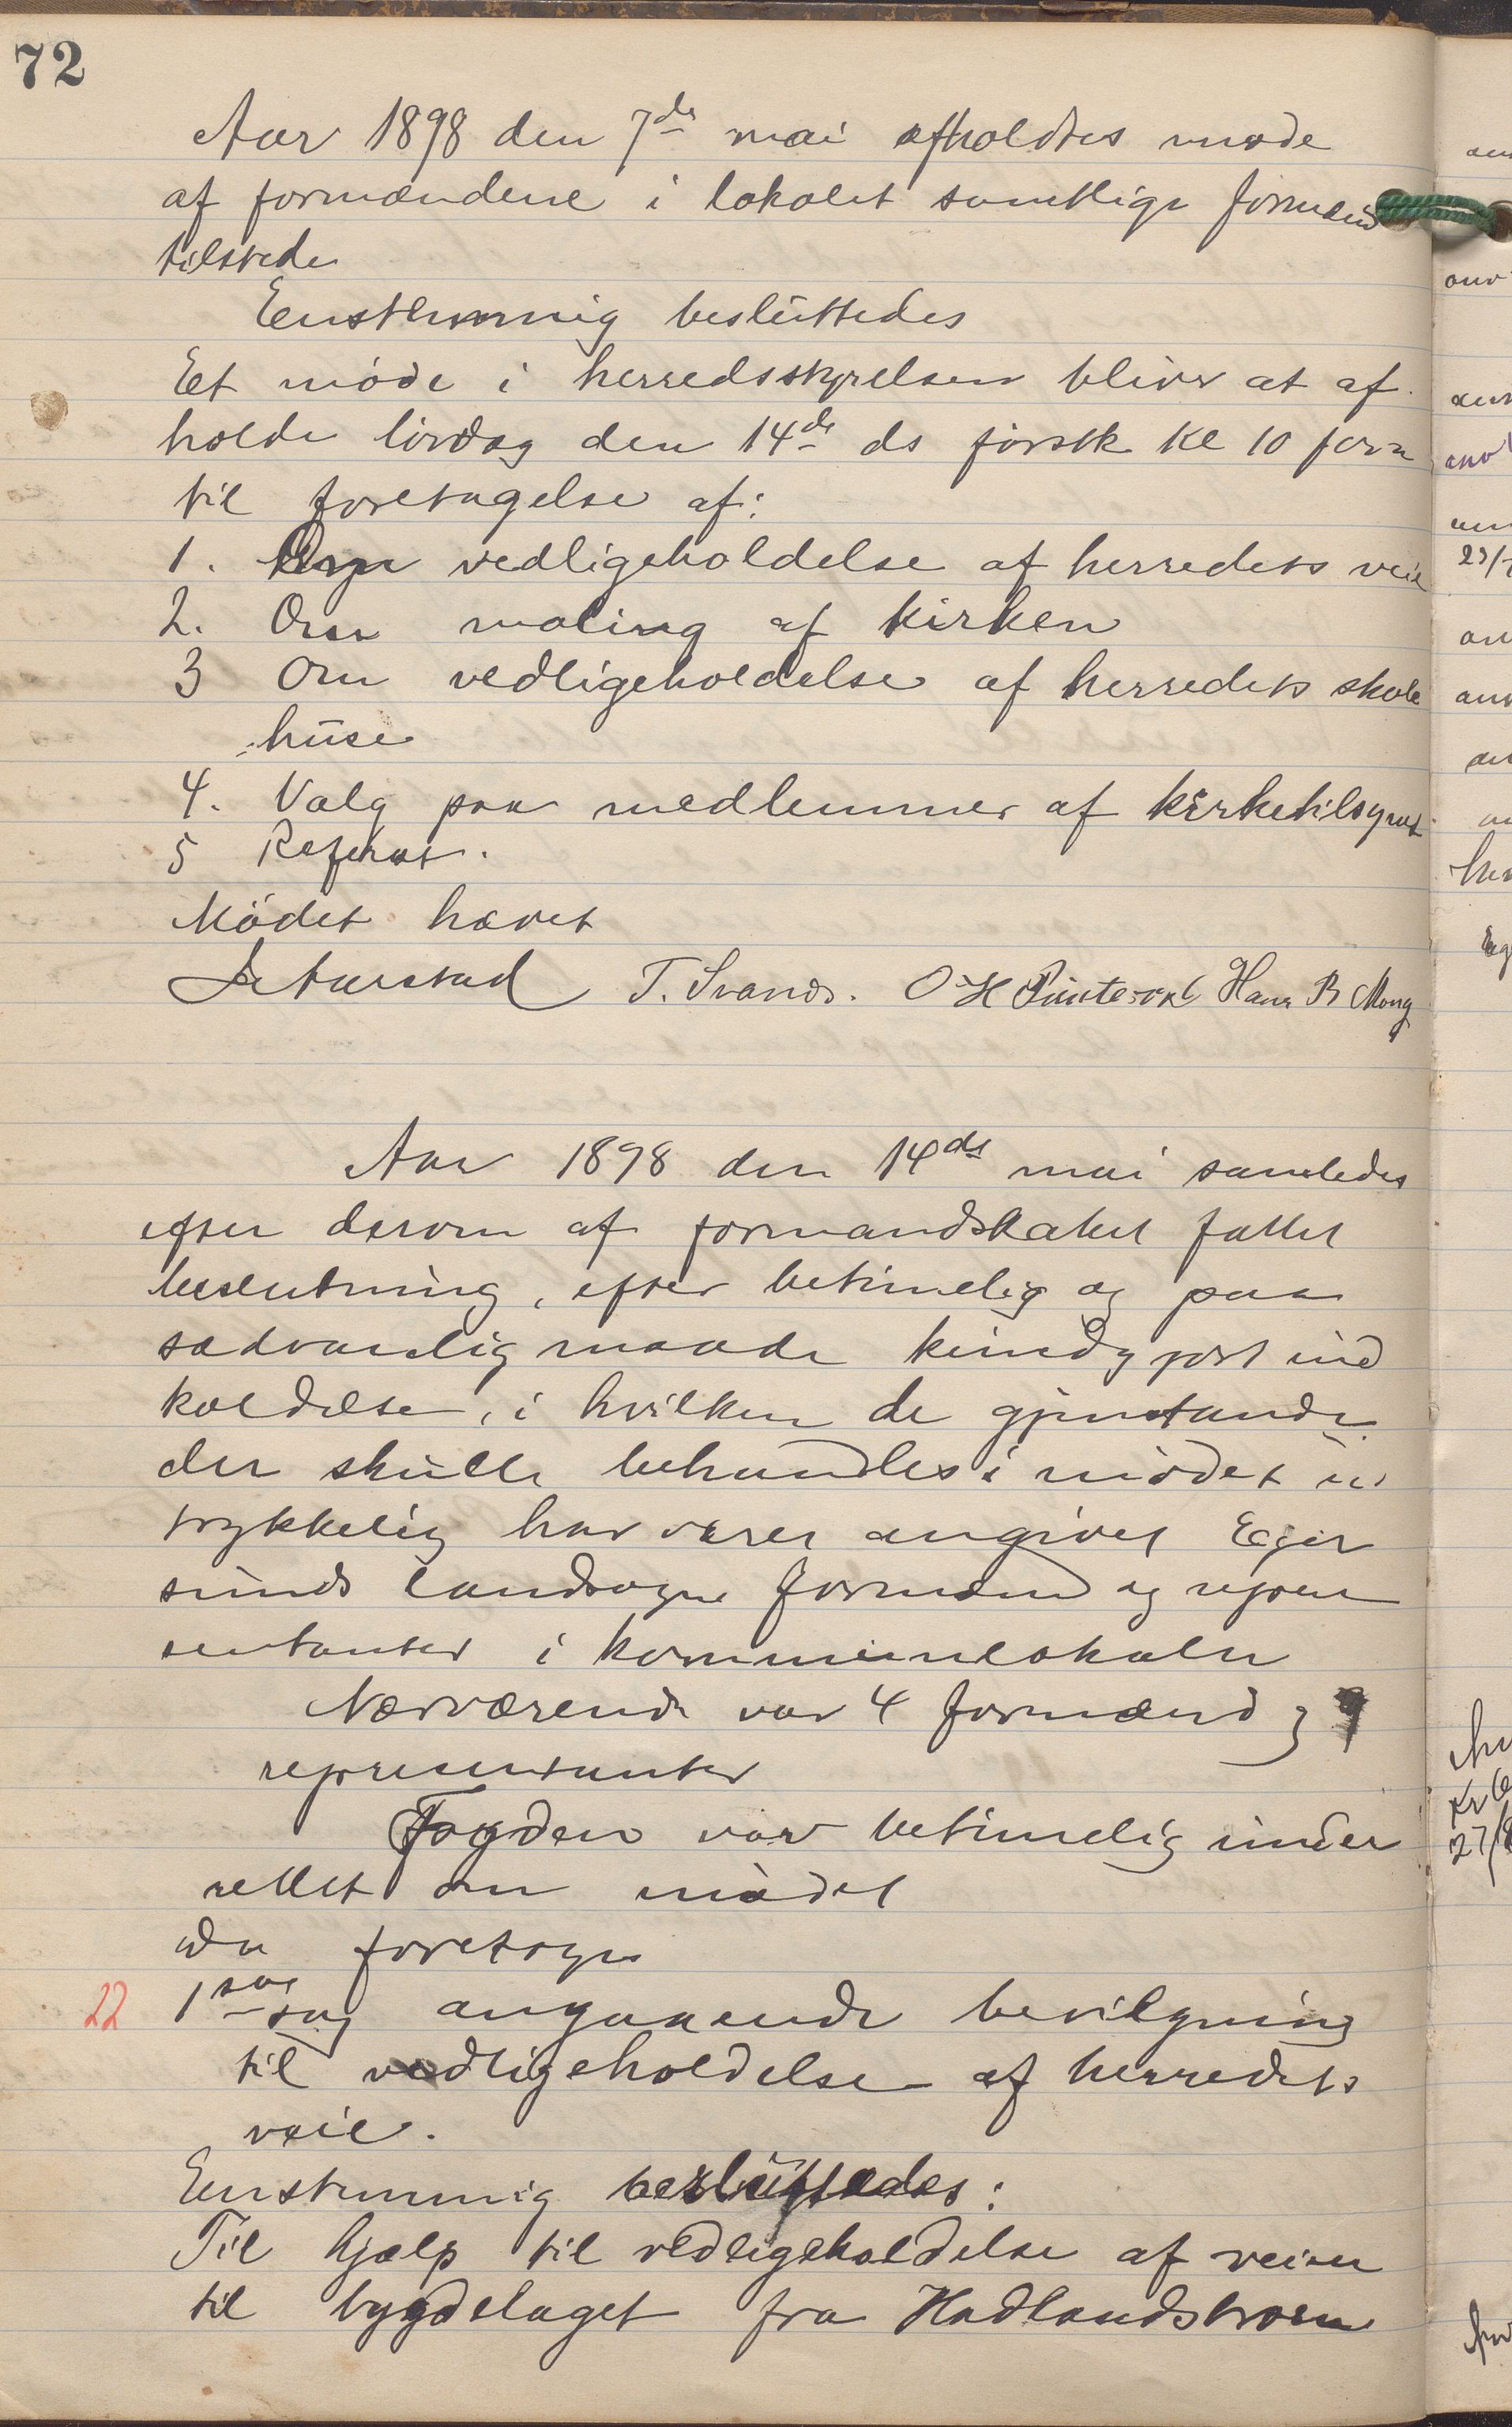 72
Aar 1898 den 7de mai afholdtes møde
af formændene i lokalet samtlige formænd
tilstede
Eenstemmig besluttedes
Et møde i herredsstyrelsen bliver at af
holde lördag den 14de ds førstk kl 10 form
til foretagelse af:
1. Om vedligeholdelse af herredets veie
2. Om maling af kirken
3 Om vedligeholdelse af herredets skole
huse
4. Valg paa medlemmer af kirketilsynet
5 Referat.
Mödet hævet
Aarstad T. Svanes. O H Hans B Mong
Aar 1898 den 14de mai samledes
efter derom af formandskabet fattet
beslutning, efter betimelig og paa
sædvanlig maade kundgjort ind
kaldelse, i hvilken de gjenstande
der skulle behandles i mödet ud
trykkelig har været angivet Eger
sunds landsogns formænd og repræ
sentanter i kommunelokalet
Nærværende var 4 formænd og 9
repræsentanter
Fogden var betimelig under
rettet om mödet
Da foretoges
22 1ste sag angaaende bevilgning
til vedligeholdelse af herredets
veie.
Eenstemmig besluttedes:
Til hjælp til vedligeholdelse af veien
til bygdelaget fra Hadlandstroen